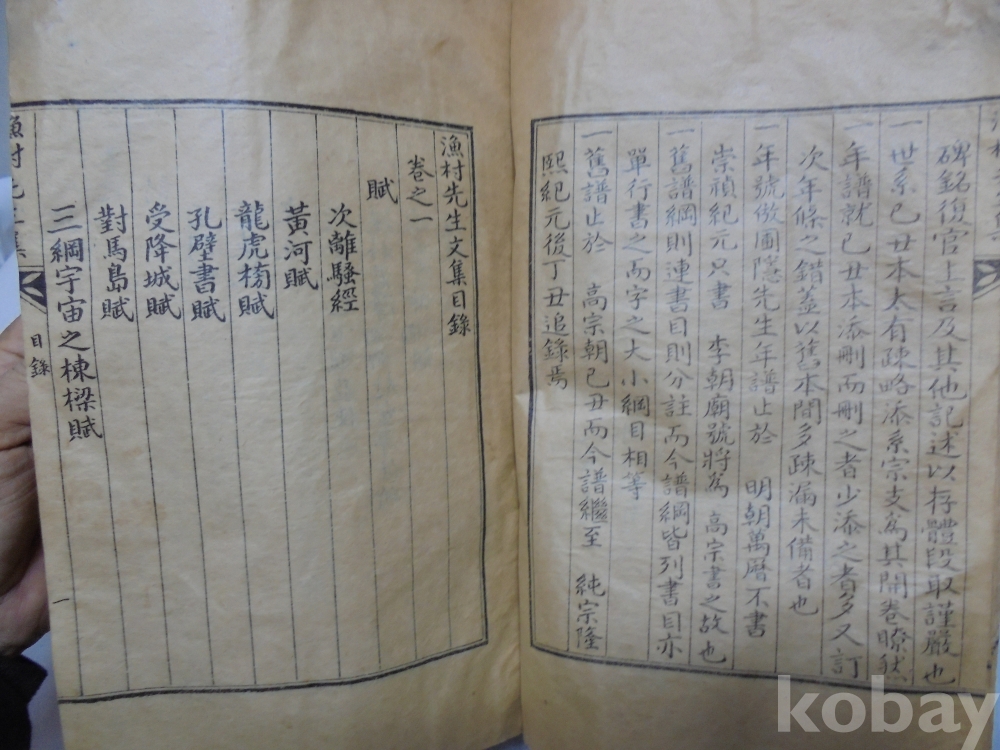 碑銘復官上言及其他記述以存體段取謹嚴也
一世系己丑本太有疎略添系宗支爲其開卷瞭然
一年譜就己丑本添刪而刪之者少添之者多又訂
次年條之錯蓋以舊本間多疎漏未備者也
一年號倣圃隱先生年譜止於 明朝萬曆不書
崇禎紀元只書 李朝廟號將爲 高宗書之故也
一舊譜綱則連書目則分註而今譜綱皆列書目亦
單行書之而字之大小綱目相等
一舊譜止於 高宗朝己丑而今譜繼至 純宗隆
熙紀元後丁丑追錄焉
漁村先生文集目錄
卷之一
賦
次離騷經
黃河賦
龍虎榜賦
孔壁書賦
受降城賦
對馬島賦
三綱宇宙之棟樑賦
漁村先生集 目錄 一
kobay